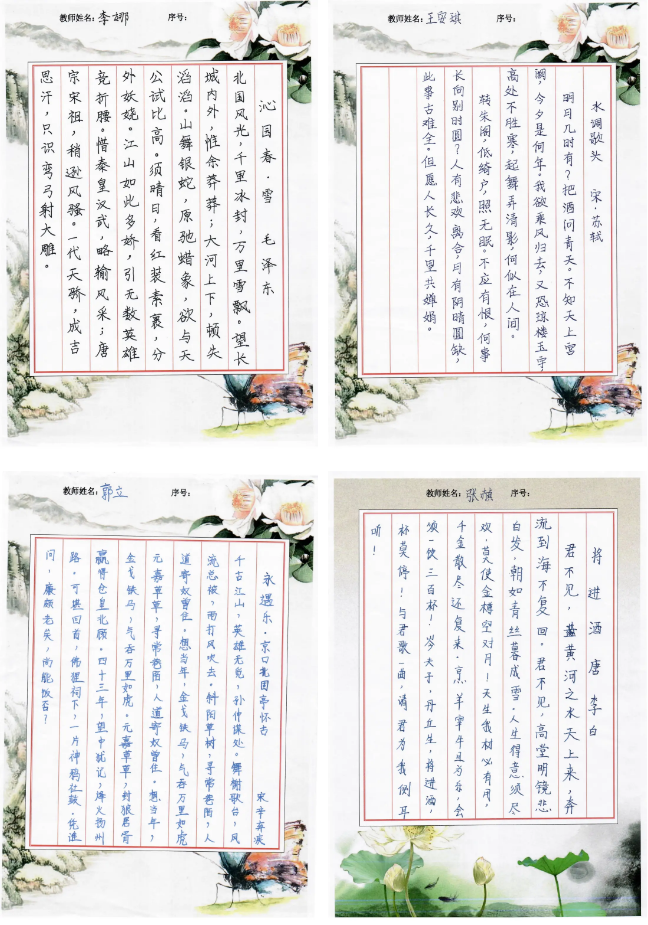 教师姓名：李娜 序号：
沁园春·雪 毛泽东
北国风光，千里冰封，万里雪飘。望长
城内外，惟余莽莽；大河上下，顿失
滔滔。山舞银蛇，原驰蜡象，欲与天
公试比高。须晴日，看红装素裹，分
外妖娆。江山如此多娇，引无数英雄
竞折腰。惜秦皇汉武，略输风采；唐
宗宋祖，稍逊风骚。一代天骄，成吉
思汗，只识弯弓射大雕。
教师姓名：王安琪 序号：
水调歌头 宋·苏轼
明月几时有？把酒问青天。不知天上宫
阙，今夕是何年。我欲乘风归去，又恐琼楼玉宇，
高处不胜寒，起舞弄清影，何似在人间。
转朱阁，低绮户，照无眠。不应有恨，何事
长向别时圆？人有悲欢离合，月有阴晴圆缺，
此事古难全。但愿人长久，千里共婵娟。
教师姓名：郭立 序号：
永遇乐·京口北固亭怀古 宋辛弃疾
千古江山，英雄无觅，孙仲谋处。舞榭歌台，风
流总被，雨打风吹去。斜阳草树，寻常巷陌，人
道寄奴曾住。想当年，金戈铁马，气吞万里如虎
元嘉草草，寻常巷陌，人道寄奴曾住。想当年，
金戈铁马，气吞万里如虎。元嘉草草，封狼居胥
赢得仓皇北顾。四十三年，望中犹记，烽火扬州
路。可堪回首，佛狸祠下，一片神鸦社鼓。凭谁
问，廉颇老矣，尚能饭否？
教师姓名：张 序号：
将进酒 唐 李白
君不见，黄河之水天上来，奔
流到海不复回。君不见，高堂明镜悲
白发，朝如青丝暮成雪。人生得意须尽
欢，莫使金樽空对月！天生我材必有用，
千金散尽还复来。烹羊宰牛且为乐，会
须一饮三百杯！岑夫子，丹丘生，将进酒，
杯莫停！与君歌一曲，请君为我倾耳
听！